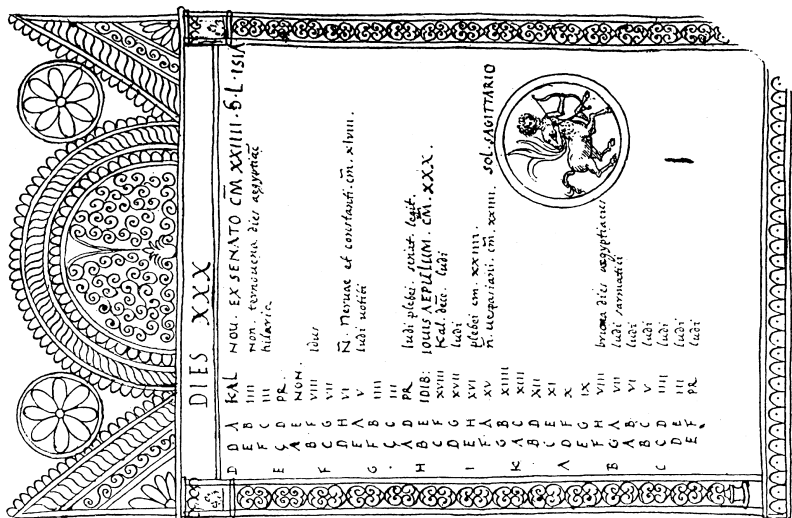 DIES XXX
D D A KAL NOU. EX SENATO CM XXIIII. L. ISIA
E B IIII Non. ternouena dies aegyptiac
F C III hilaria
E G D PR.
A E NON.
F B F VIII Idus
C G VII
F D H VI N. Neruae et constanti. cm. xlviii.
E A V ludi uotiui
G F B IIII
. G C III
A D PR ludi plebei. senat. legit.
H B E IDIB: IOUIS AEPULUM. CM. XXX.
C F XVIII Kal. dec. ludi
D G XVII ludi
I E H XVI plebei cm. xxiiii.
F A XV n. uespasiani. cm. xxiiii. SOL. SAGITTARIO
G B XIIII
K A C XIII
B D XII
C E XI
A D F X
E G IX
F H VIII bruma dies aegyptiacus
B G A VII ludi sarmatici
A B VI ludi
B C V ludi
C C D IIII ludi
D E III ludi
E F. PR ludi